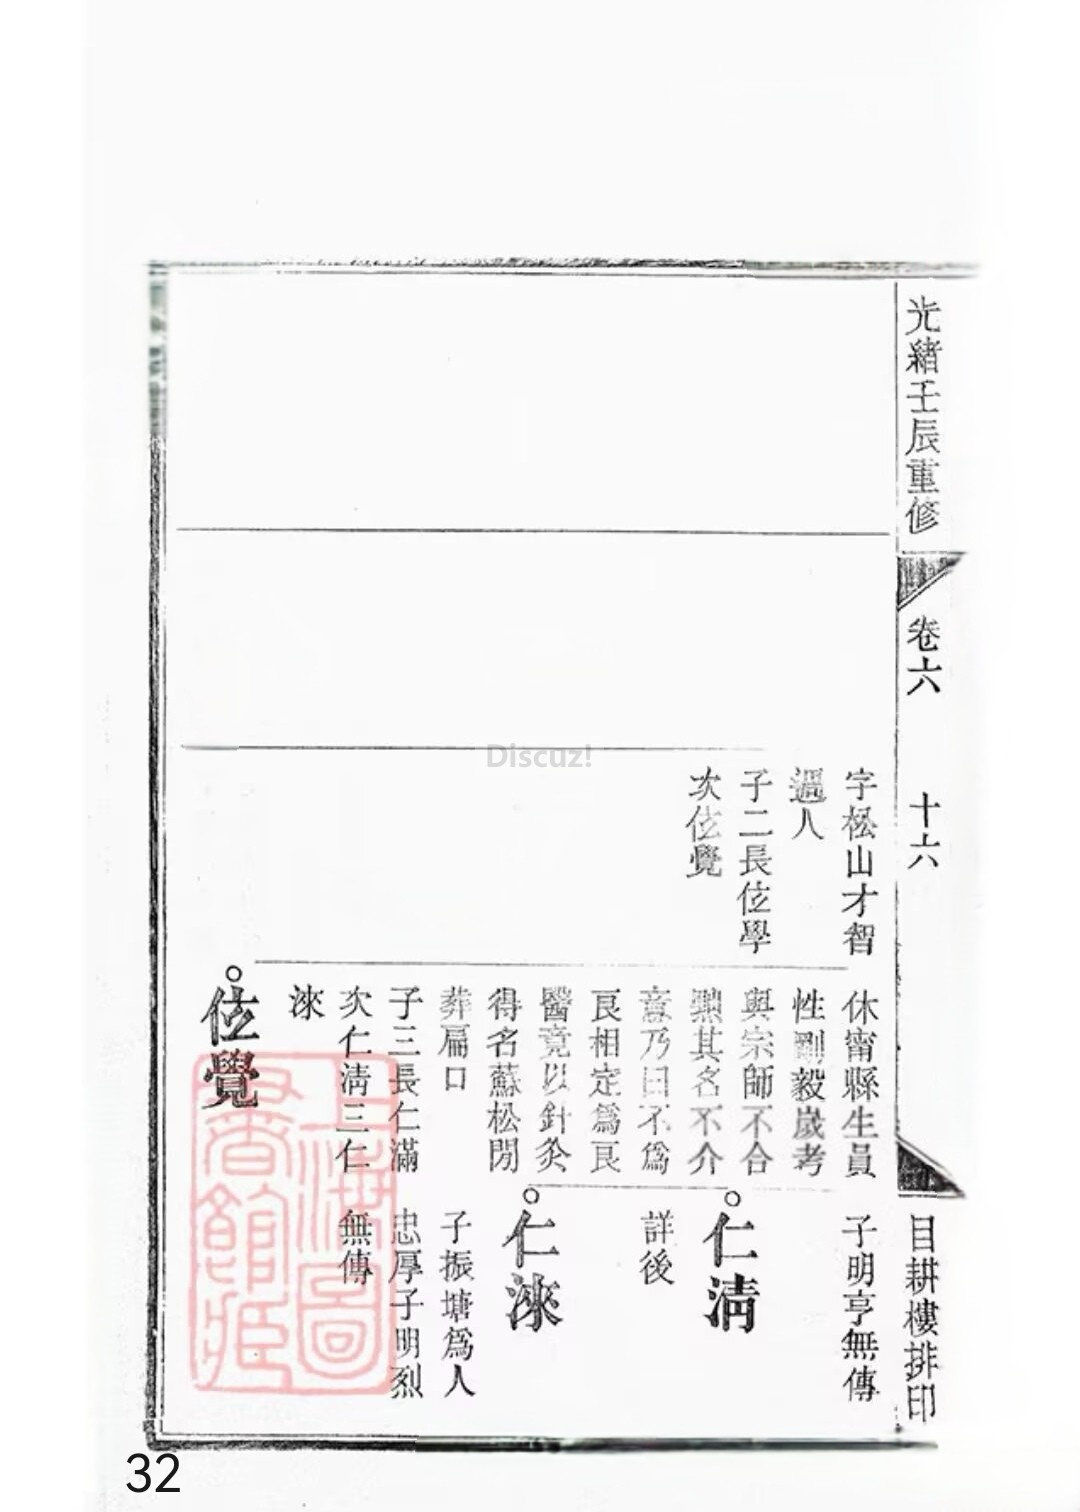 光緒壬辰重修
卷六
十六
目耕樓排印
字松山才智
過人
子二長伭學
次伭覺
休甯縣生員
性剛毅歲考
與宗師不合
黜其名不介
意乃曰不爲
良相定爲良
醫竟以針灸
得名蘇松閒
葬扁口
子三長仁滿
次仁淸三仁
淶
伭覺
子明亨無傳
仁淸
詳後
仁淶
子振塘爲人
忠厚子明烈
無傳
上海圖
書館藏
Discuz!
32